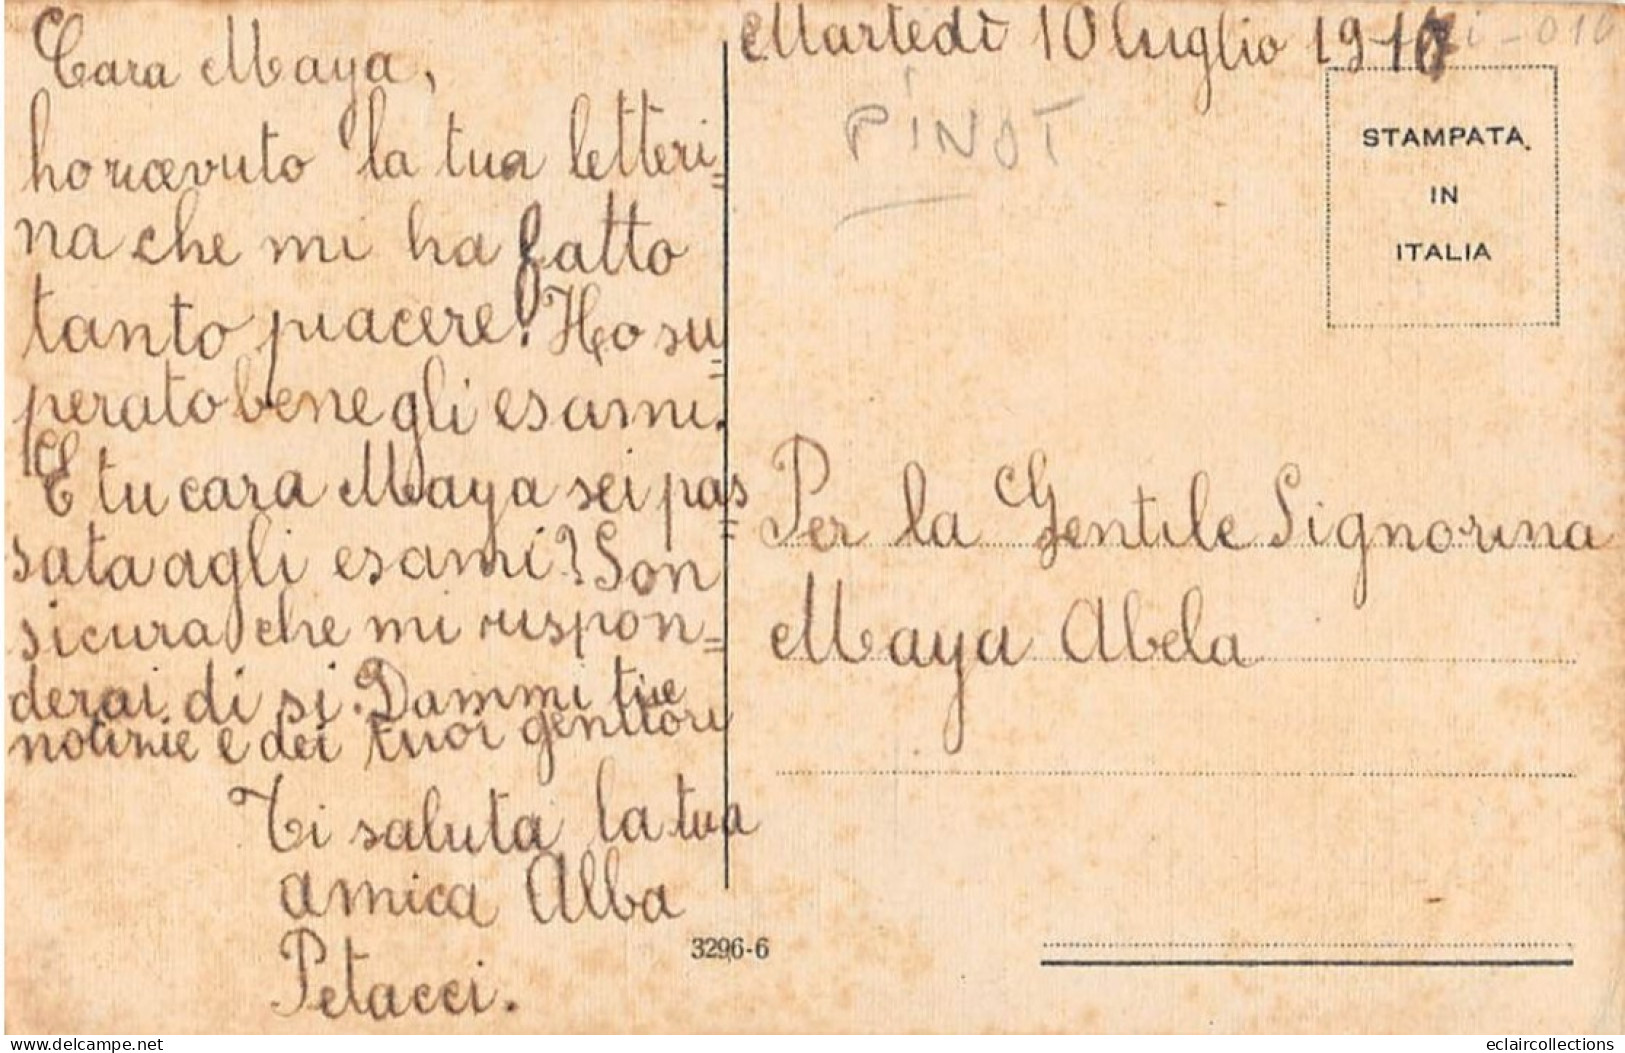 Martedì 10 luglio 1917
Cara Maya,
ho ricevuto la tua letteri=
na che mi ha fatto
tanto piacere. Ho su=
perato bene gli esami.
E tu cara Maya sei pas=
sata agli esami? Son
sicura che mi rispon=
derai di si. Dammi tue
notizie e dei tuoi genitori
Ti saluta la tua
amica Alba
Petacci.
PINOT
STAMPATA
IN
ITALIA
Per la Gentile Signorina
Maya Abela
3296-6
www.delcampe.net
eclaircollections